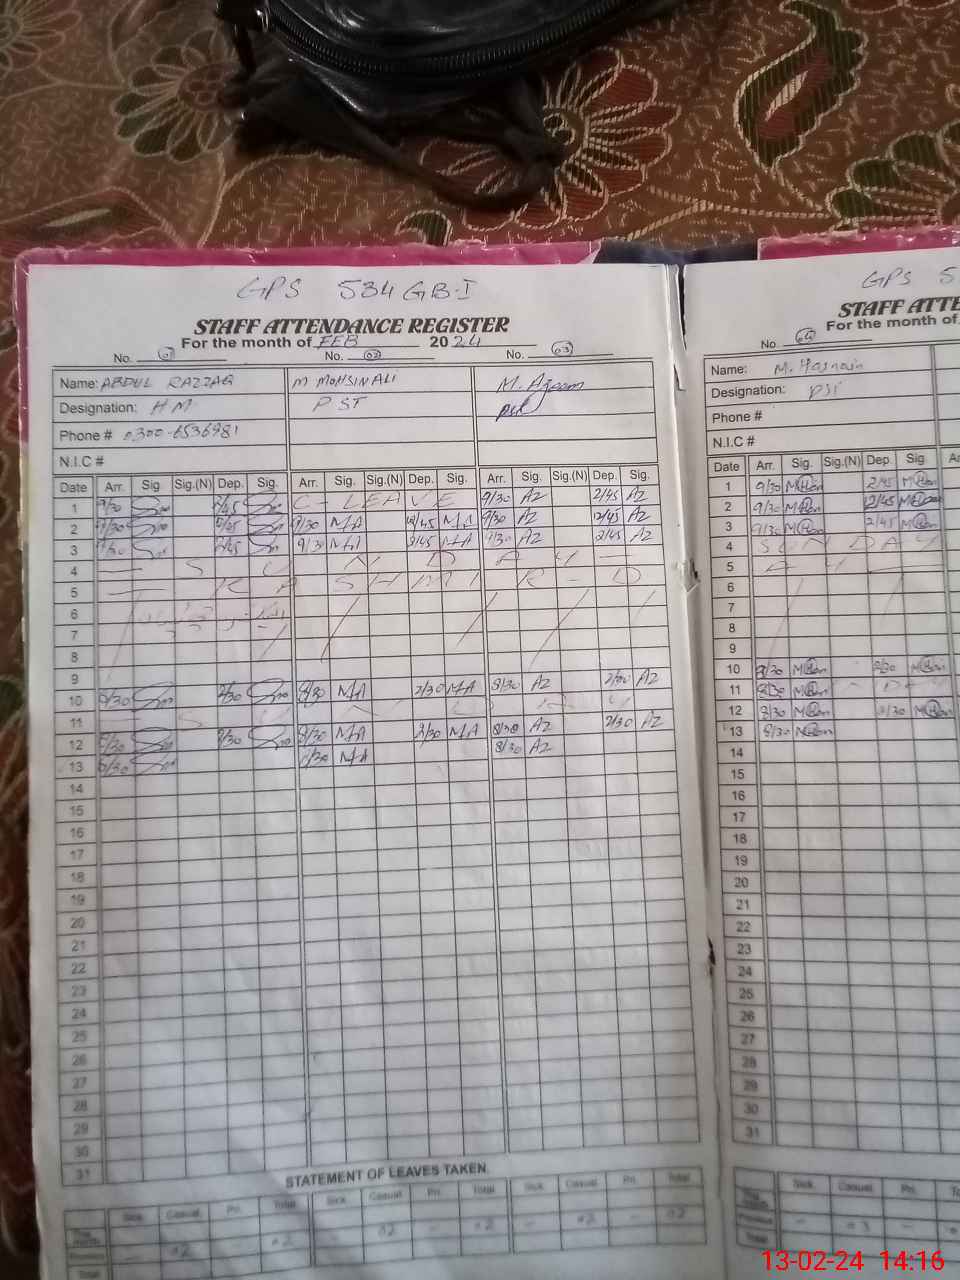 GPS 534 GB-I
STAFF ATTENDANCE REGISTER
For the month of FEB 2024
No. 01 No. 02 No. 03
Name: ABDUL RAZZAQ M MOHSIN ALI M. Azeem
Designation: HM PST PST
Phone # 0300-6536981
N.I.C #
Date Arr. Sig. Sig.(N) Dep. Sig. Arr. Sig. Sig.(N) Dep. Sig. Arr. Sig. Sig.(N) Dep. Sig.
1 9/30 2/45 C - LEAVE 9/30 AZ 2/45 AZ
2 9/30 9/30 MA 12/45 MA 9/30 AZ 12/45 AZ
3 9/30 2/45 9/30 MA 2/45 MA 9/30 AZ 2/45 AZ
4 SUNDAY
5 KASHMIR - D
6
7
8
9
10 8/30 2/30 8/30 MA 2/30 MA 8/30 AZ 2/30 AZ
11 SUNDAY
12 8/30 2/30 8/30 MA 2/30 MA 8/30 AZ 2/30 AZ
13 8/30 8/30 MA 8/30 AZ
14
15
16
17
18
19
20
21
22
23
24
25
26
27
28
29
30
31
STATEMENT OF LEAVES TAKEN.
Sick Casual Pri. Total Sick Casual Pri. Total Sick Casual Pri. Total
This month
Previous - 02 - 02 - 02 - 02 - 02 - 02
Total
GPS 5
STAFF ATTE
For the month of
No. 04
Name: M. Hasnain
Designation: PST
Phone #
N.I.C #
Date Arr. Sig. Sig.(N) Dep. Sig. Ar
1 9/30 2/45
2 9/30 12/45
3 9/30 2/45
4 SUNDAY
5 AY
6
7
8
9
10 8/30 2/30
11
12 8/30 2/30
13 8/30
14
15
16
17
18
19
20
21
22
23
24
25
26
27
28
29
30
31
Sick Casual Pri. To
This month
Previous - 03 -
Total
13-02-24 14:16